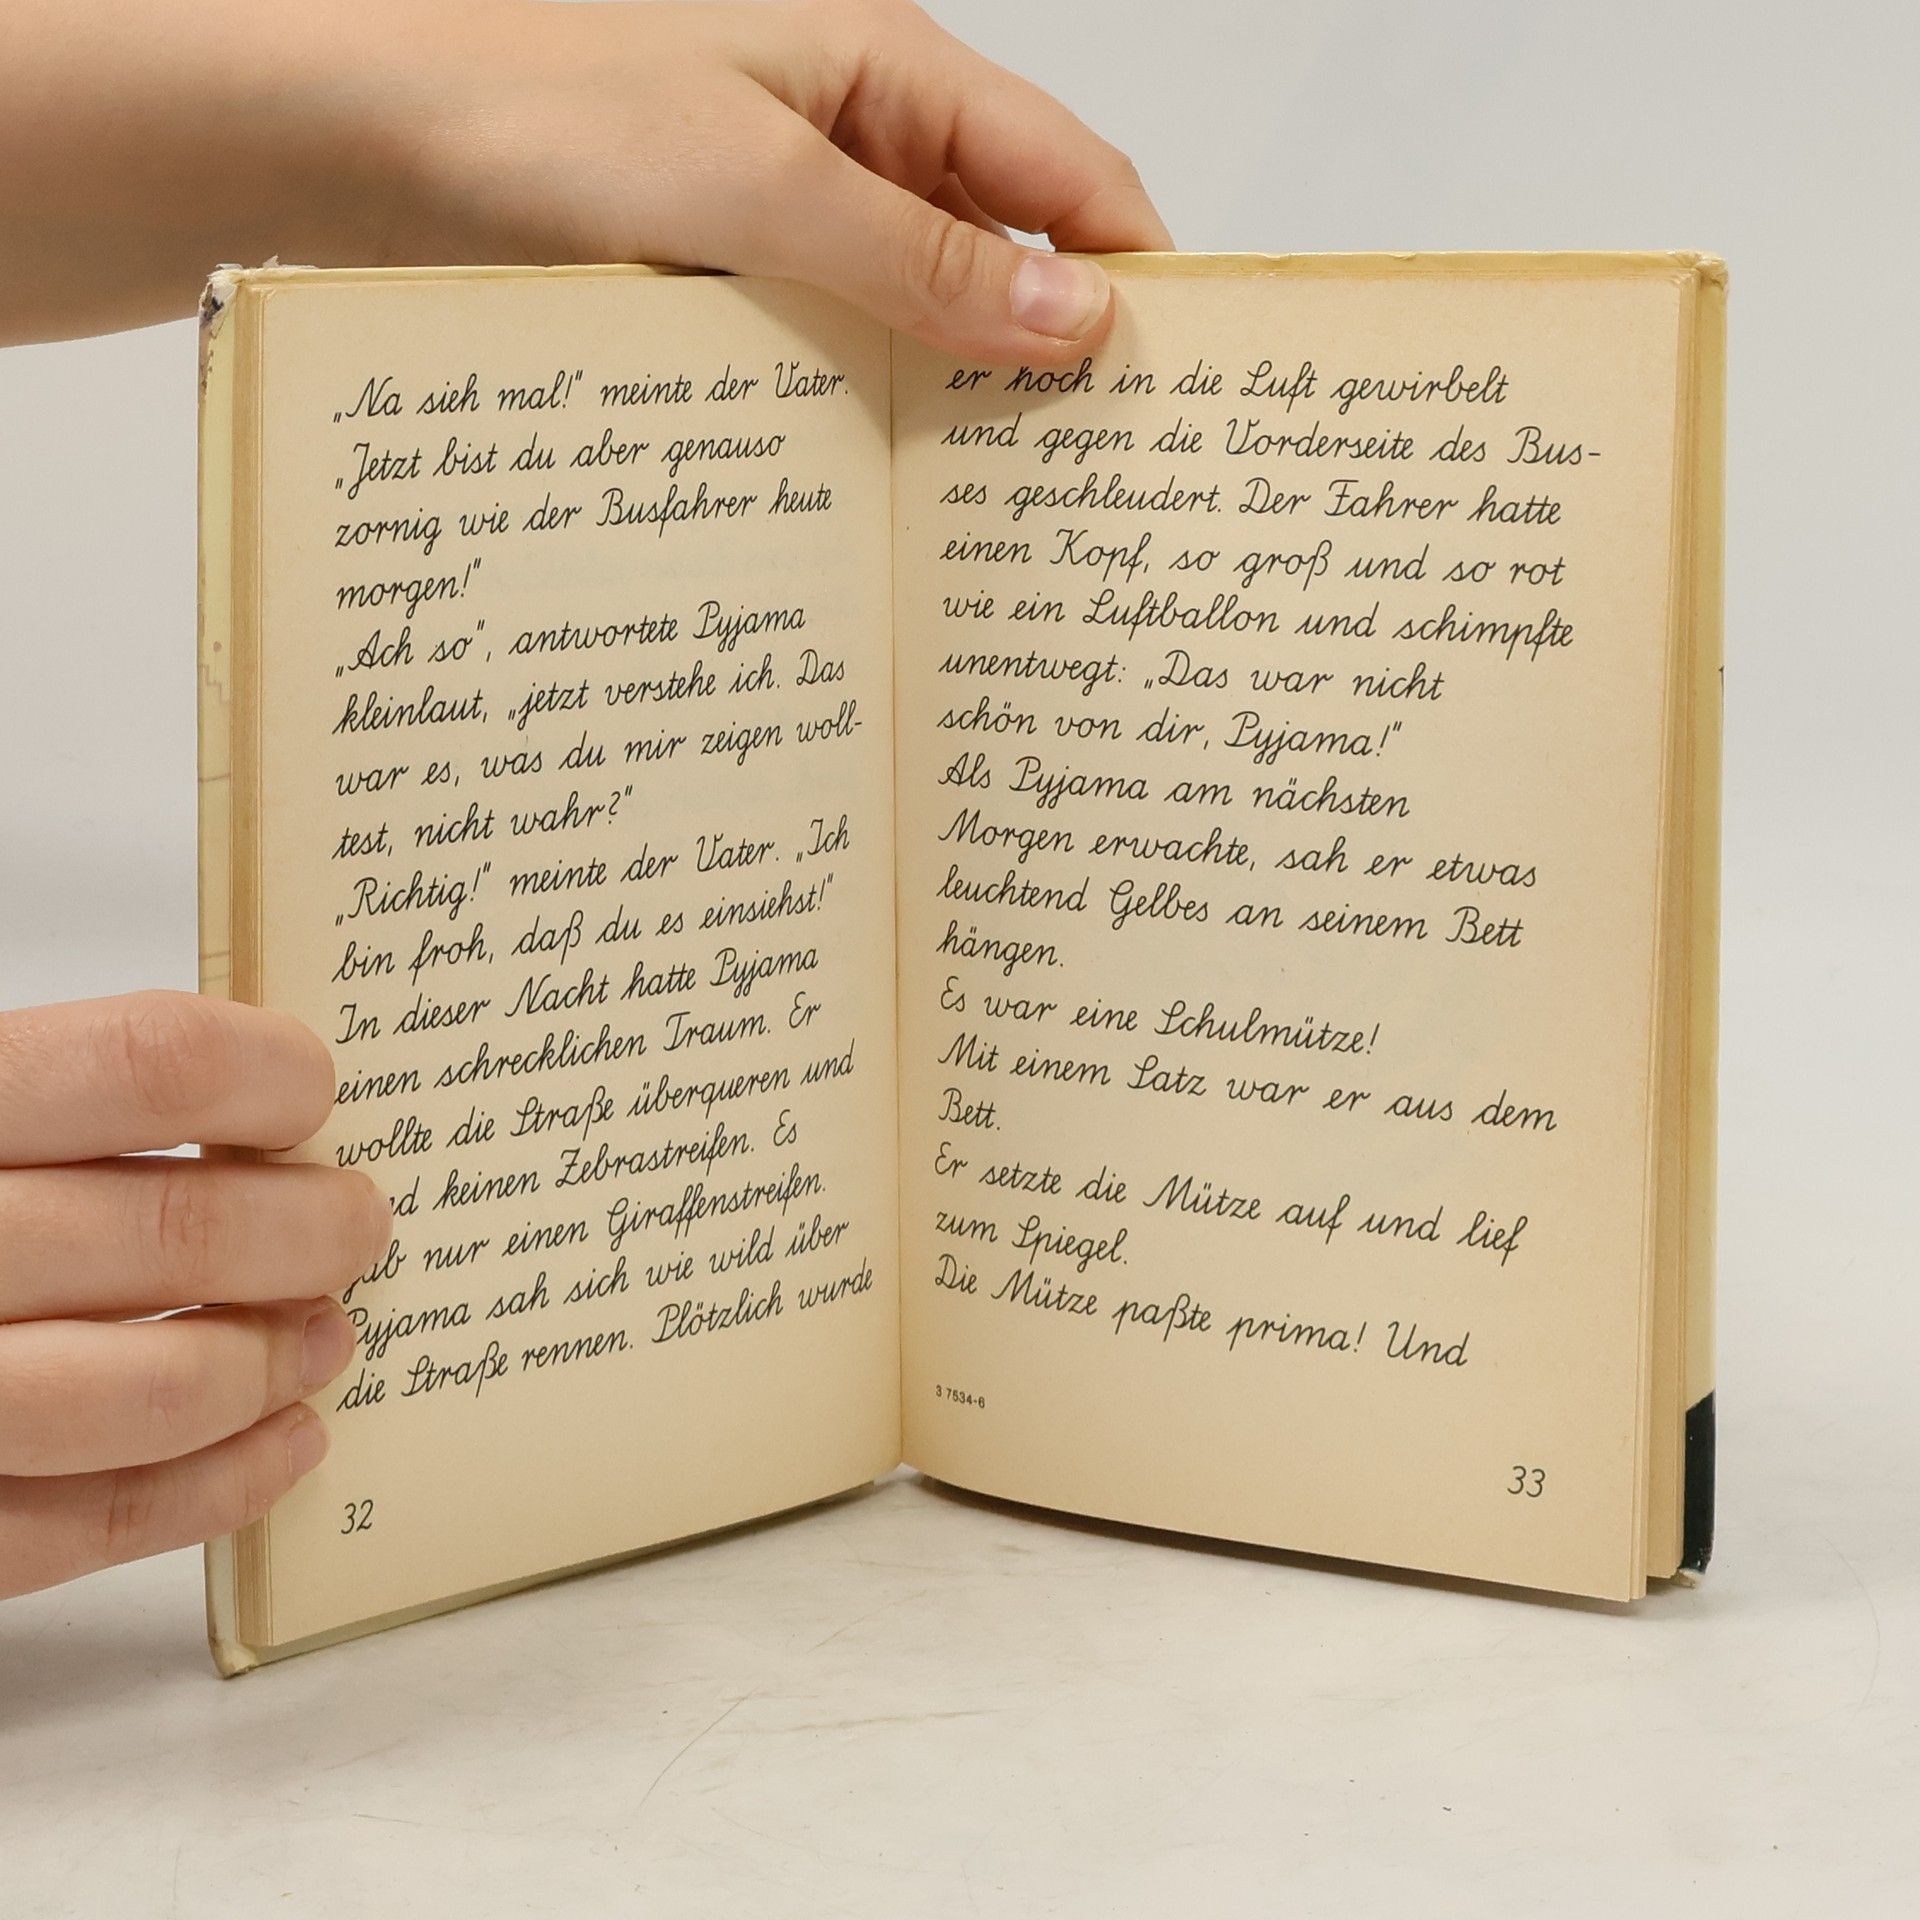 „Na sieh mal!“ meinte der Vater.
„Jetzt bist du aber genauso
zornig wie der Busfahrer heute
morgen!“
„Ach so“, antwortete Pyjama
kleinlaut, „jetzt verstehe ich. Das
war es, was du mir zeigen woll-
test, nicht wahr?“
„Richtig!“ meinte der Vater. „Ich
bin froh, daß du es einsiehst!“
In dieser Nacht hatte Pyjama
einen schrecklichen Traum. Er
wollte die Straße überqueren und
keinen Zebrastreifen. Es
gab nur einen Giraffenstreifen.
Pyjama sah sich wie wild über
die Straße rennen. Plötzlich wurde
32
er hoch in die Luft gewirbelt
und gegen die Vorderseite des Bus-
ses geschleudert. Der Fahrer hatte
einen Kopf, so groß und so rot
wie ein Luftballon und schimpfte
unentwegt: „Das war nicht
schön von dir, Pyjama!“
Als Pyjama am nächsten
Morgen erwachte, sah er etwas
leuchtend Gelbes an seinem Bett
hängen.
Es war eine Schulmütze!
Mit einem Satz war er aus dem
Bett.
Er setzte die Mütze auf und lief
zum Spiegel.
Die Mütze paßte prima! Und
3 7534-6
33